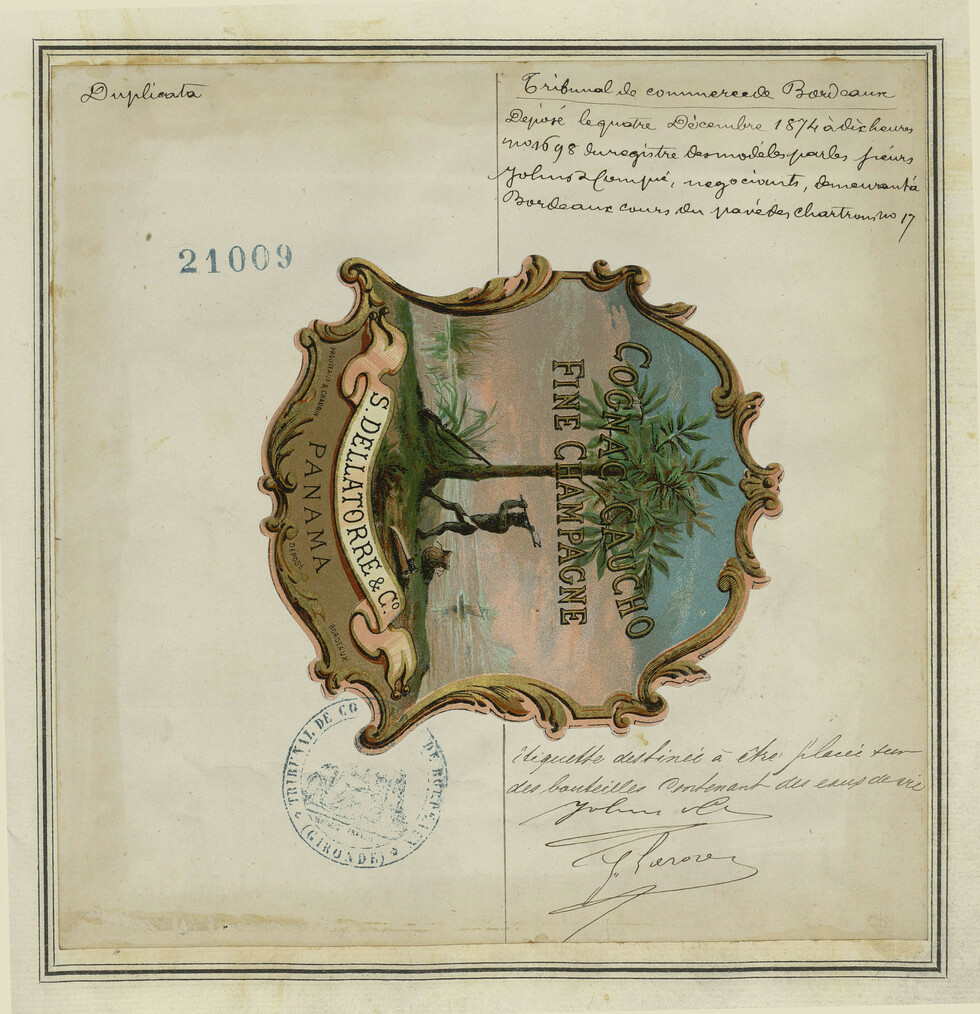 Duplicata
Tribunal de commerce de Bordeaux
Déposé le quatre Décembre 1874 à dix heures
no 1698 du registre des modèles par les sieurs
Johns & Compie, negociants, demeurant à
Bordeaux cours du pavé des Chartrons no 17
21009
COGNAC GAUCHO
FINE CHAMPAGNE
S. DELLATORRE & Co.
PANAMA
DEPOSÉ
BORDEAUX
TRIBUNAL DE CO
DE BORDEAUX
(GIRONDE)
étiquette destinée à être placée sur
des bouteilles contenant des eaux de vie
Johns & Ce